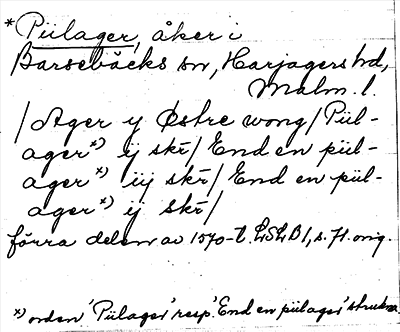 * Piilager, åker i
Barsebäcks sn, Harjagers hd,
Malm. l.
/Ager y Østre wong/ Piil-
ager *) ij skr̄/ End en piil-
ager *) iij skr̄/ End en piil-
ager *) ij skr̄/
förra delen av 1570-t. LSLB 1, s. 71. orig.
*) orden 'Piilager' resp. 'End en piilager' strukna.